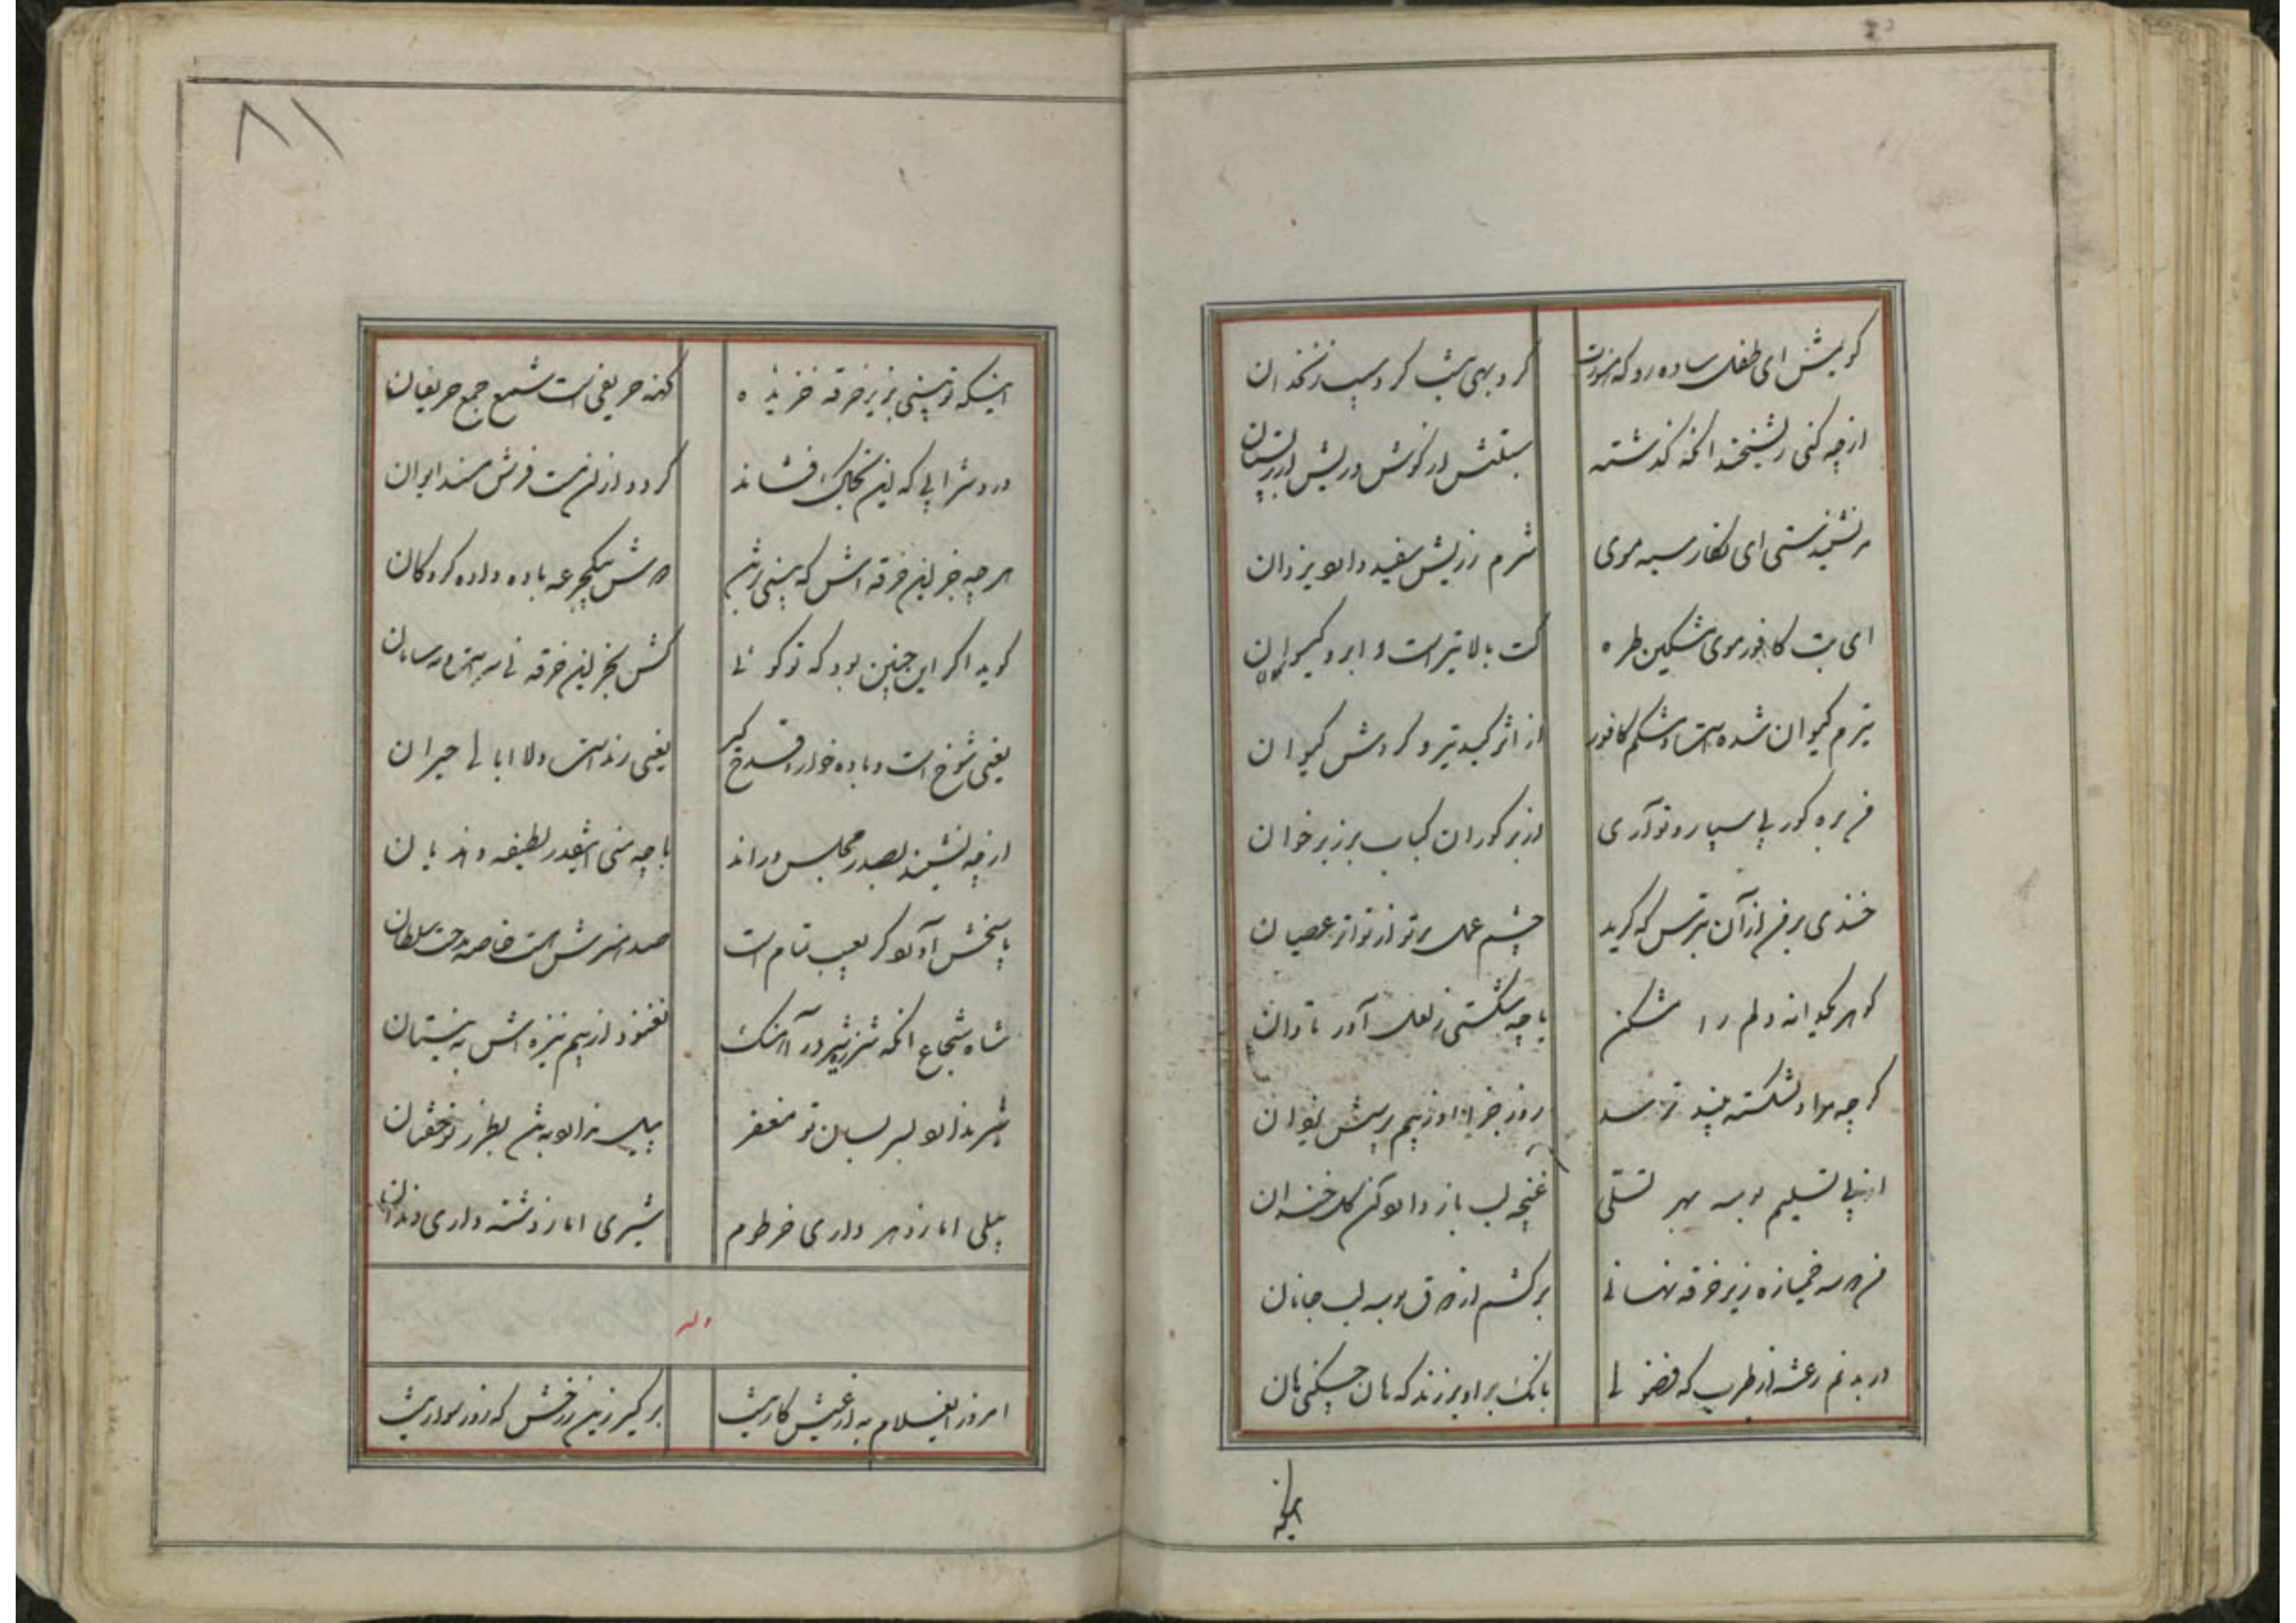 گویش ای طفل ساده رو که هنوزت
گرد بهی شب گرد سیب زنخدان
از چه کنی ریشخند آنکه گذشته
سبلتش از گوش و ریش از
می نشنیدستی ای نگار سیه موی
شرم ز ریش سفید دارد یزدان
ای بت کافور موی مشکین طره
کت بالا تیر است و ابرو کیوان
تیرم کیوان شده است و مشکم کافور
از اثر کید تیر و گردش کیوان
من بره گور پی سپارم و تو آری
از بر گوران کباب بر زبر خوان
خندی بر من از آن بترس که گرید
چشم عمل بر تو از تواتر عصیان
گوهر یکدانه دلم را مشکن
یا چو شکستی ز لعل آور تاوان
گرچه مراد شکسته بند نرسد
روز جزا او ز بیم پرسش نیوان
از پی تسلیم بوسه بهر تسلی
غنچه لب باز دار و کن گل خندان
من همه خمیازه زیر خرقه نهانی
برکشم از شوق بوسه لب جانان
در بدنم رعشه از طرب که فضولی
بانک برآورد زند که هان چکنی هان
اینکه
۸۱
اینکه تو بینی بزیر خرقه خزیده
کهنه حریفی است شمع جمع حریفان
درد شرابی که این بخاک افشاند
گردد از آن مست فرش مسند ایوان
هر چه جز این خرقه اش که بینی بر تن
همش بیکجرعه باده داده گروگان
گوید اگر این چنین بود که تو گوئی
کش بجز این خرقه نی سر است و نه سامان
یعنی شوخ است و باده خوار و قدح گیر
یعنی رند است و لاابالی حیران
از چه نشیند بصدر مجلس و راند
با چو منی اینقدر لطیفه و هذیان
پاسخش آرد کو گر بعیب تمام است
صد هنرش هست خاصه مدحت سلطان
شاه شجاع آنکه شرزه شیر در آهنگ
نغنود از بیم نیزه اش به نیستان
شیر ندارد بسر بسان تو مغفر
پیل ندارد به تن بطرز تو خفتان
پیلی اما ز دهر داری خرطوم
شیری اما ز دشنه داری دندان
وله
امروز ای غلام به از عیش کار نیست
برگیر زین ز رخش که روز سواریست